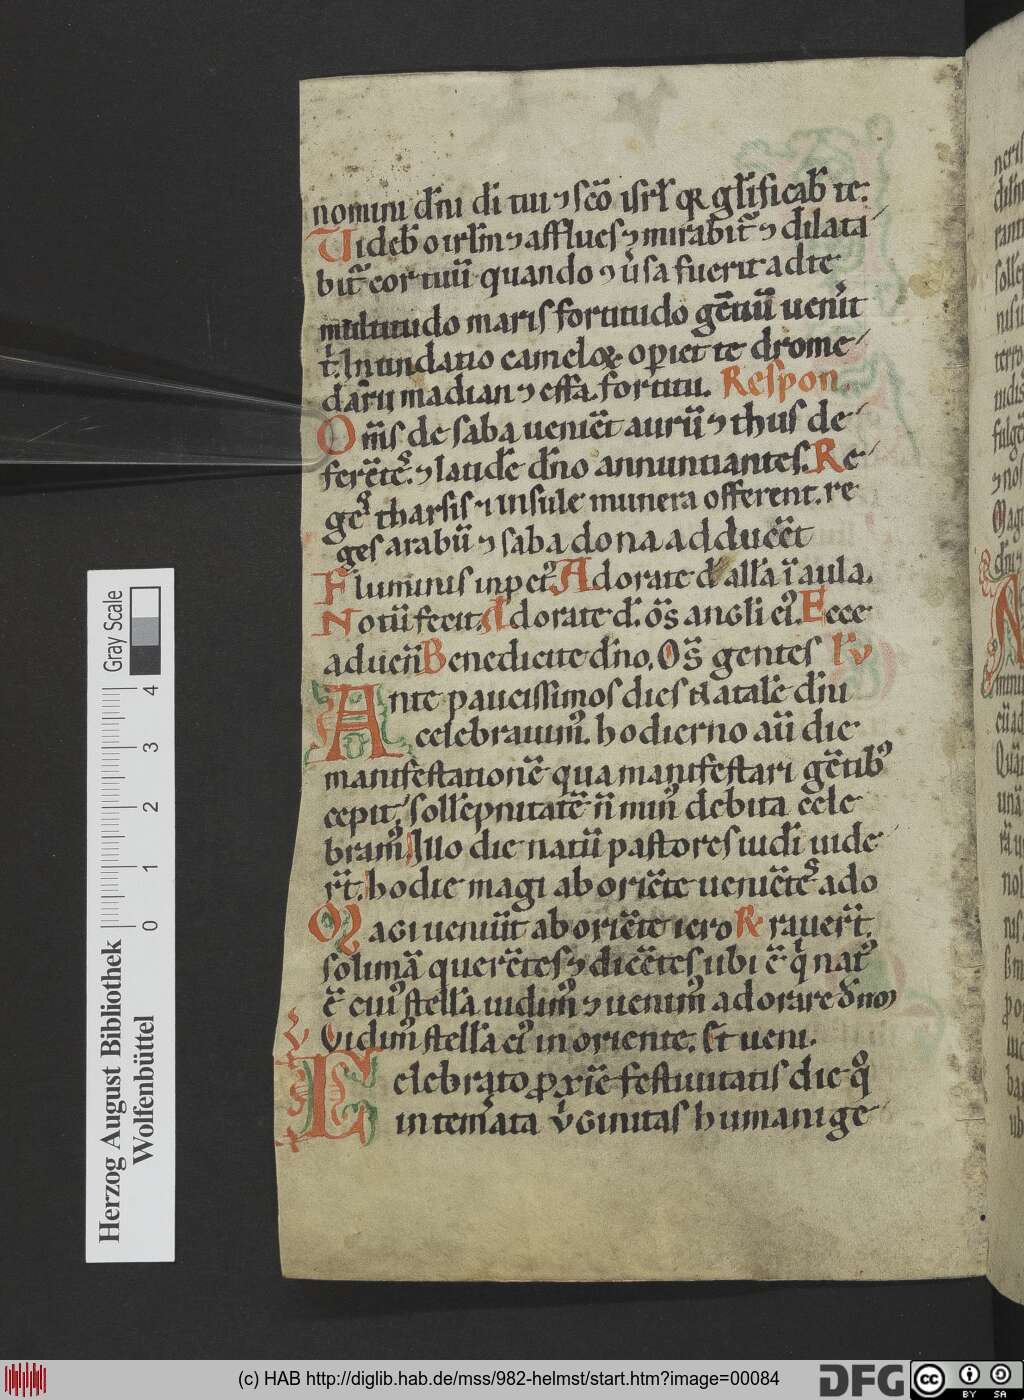 nomini dn̄i di tui ⁊ sc̄o isrl̄ qꝛ gl̄ificab̄ te:
Videb̄ o irl̄m ⁊ afflues ⁊ mirabit᷑ ⁊ dilata
bit᷑ cor tuū quando ⁊ ůsa fuerit ad te
multitudo maris fortitudo gētiū uen̄it
t̄. Inundatio cameloꝝ operiet te drome
darii madian ⁊ effa. fortitu. Respon.
Om̄s de saba ueniēt aurū ⁊ thus de
ferētes. ⁊ laudē dn̄o annuntiantes. Re
ges tharsis ⁊ insule munera offerent. re
ges arabū ⁊ saba dona adducēt
Fluminis inpet᷒. Adorate d̄ all̄a ī aula.
Notū fecit. Adorate d̄. om̄s angli ei᷒. Ecce
aduen̄ Benedicite dn̄o. Om̄s gentes
Ante paucissimos dies natale dn̄i
celebrauim᷒. hodierno aū die
manifestationē qua manifestari gētib᷒
cepit. sollēpnitatē n̄ min᷒ debita cele
bram᷒. Illo die natū pastores iudi uide
rt̄. hodie magi ab oriēte ueniētes ado
Magi uenūt ab oriēte iero rauer̄t.
solimā querētes ⁊ dicētes ubi ē qͥ nat᷒
ē cui᷒ stellā uidim᷒ ⁊ uenim᷒ adorare dn̄m
V Vidim᷒ stellā ei᷒ in oriente. Et ueni.
Celebrato ꝓxīe festiuitatis die qͦ
intem̄ata ůginitas humani ge
Gray Scale
0 1 2 3 4
Herzog August Bibliothek
Wolfenbüttel
(c) HAB http://diglib.hab.de/mss/982-helmst/start.htm?image=00084
DFG
cc BY SA